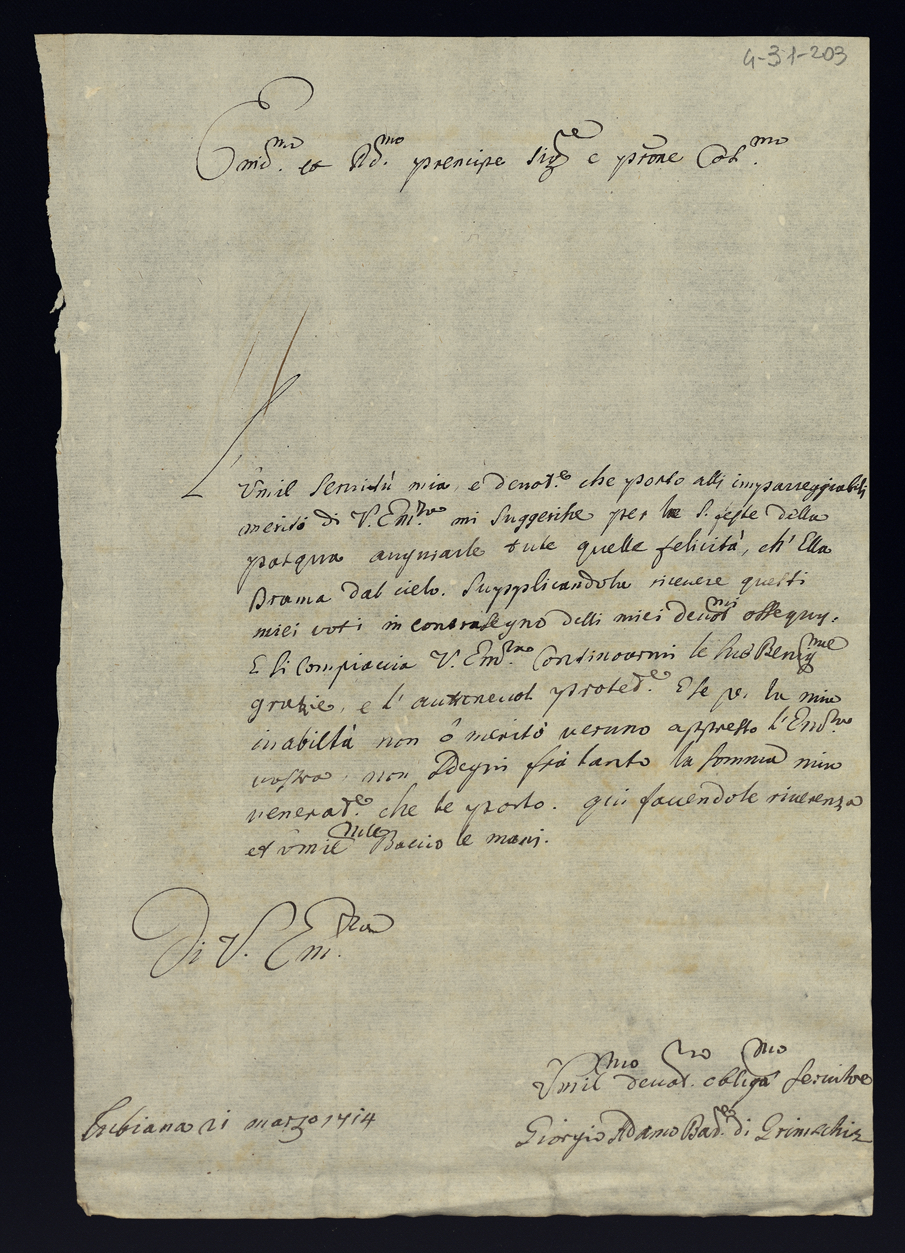 4-31-203
Em̃.mo et R̃d.mo prencipe Sig.re e prõne Col.mo
L'
Vmil Seruitù mia, e deuot.e che porto alli impareggiabili
merito di V. Em.za mi Suggerische per le S. feste della
pasqua augurarle tute quelle felicità, ch' Ella
Brama dal cielo. Supplicandola riceuere questi
miei voti in contrasegno delli miei deuot.mi ossequy.
E si Compiaccia V. Em.za Continouarmi le sue Benig.me
grazie, e l' protet.e E se per la mia
inabiltà non ò merito veruno appresso l' Em.za
vostra, non Sdegni frà tanto la somma mia
venerat.e che le porto. qui facendole riuerenza
et vmil.mte Baccio le mani.
Di V. Em.za
Vmil.mo deuot.mo obligat.mo seruitore
Lubiana 21 marzo 1714
Giorgio Adamo Bar.e di Grimschiz